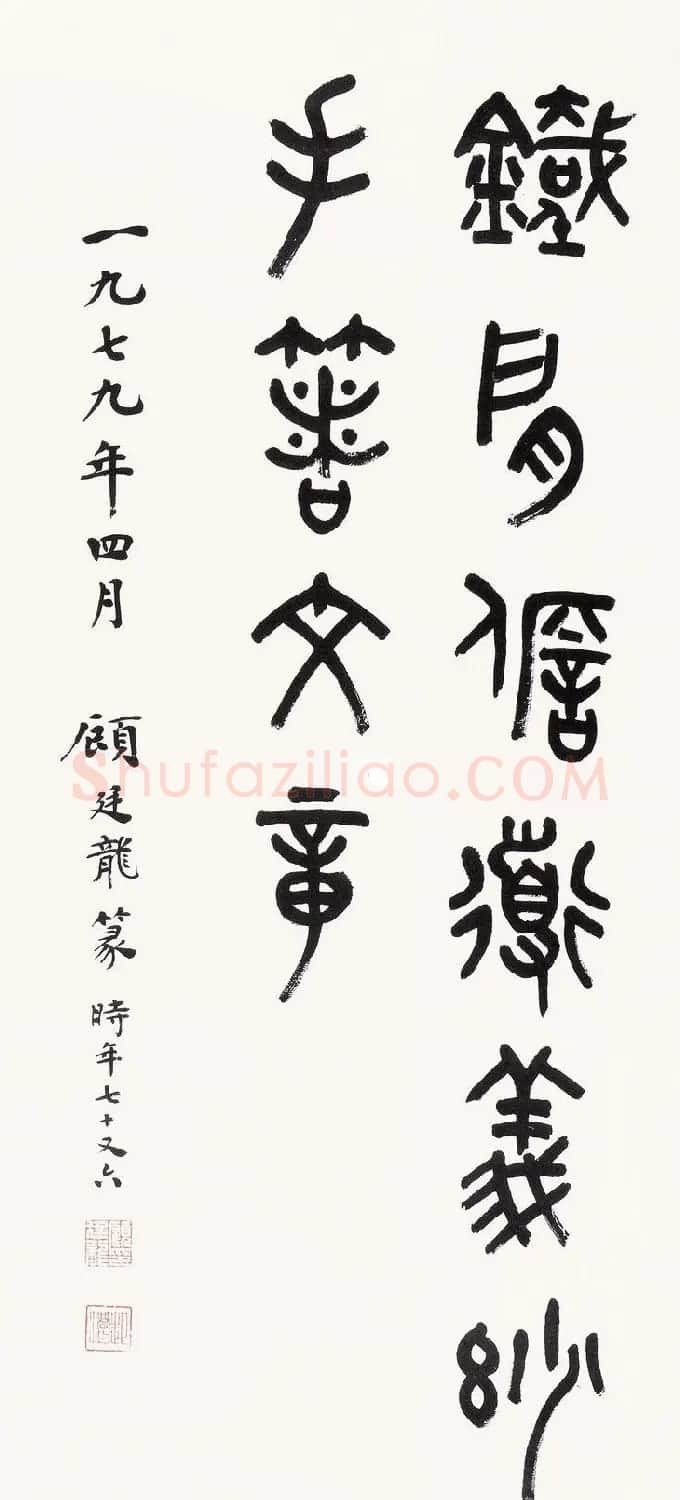 鐵肩儋道義妙
手箸文章
一九七九年四月 顧廷龍篆 時年七十又六
Shufaziliao.COM